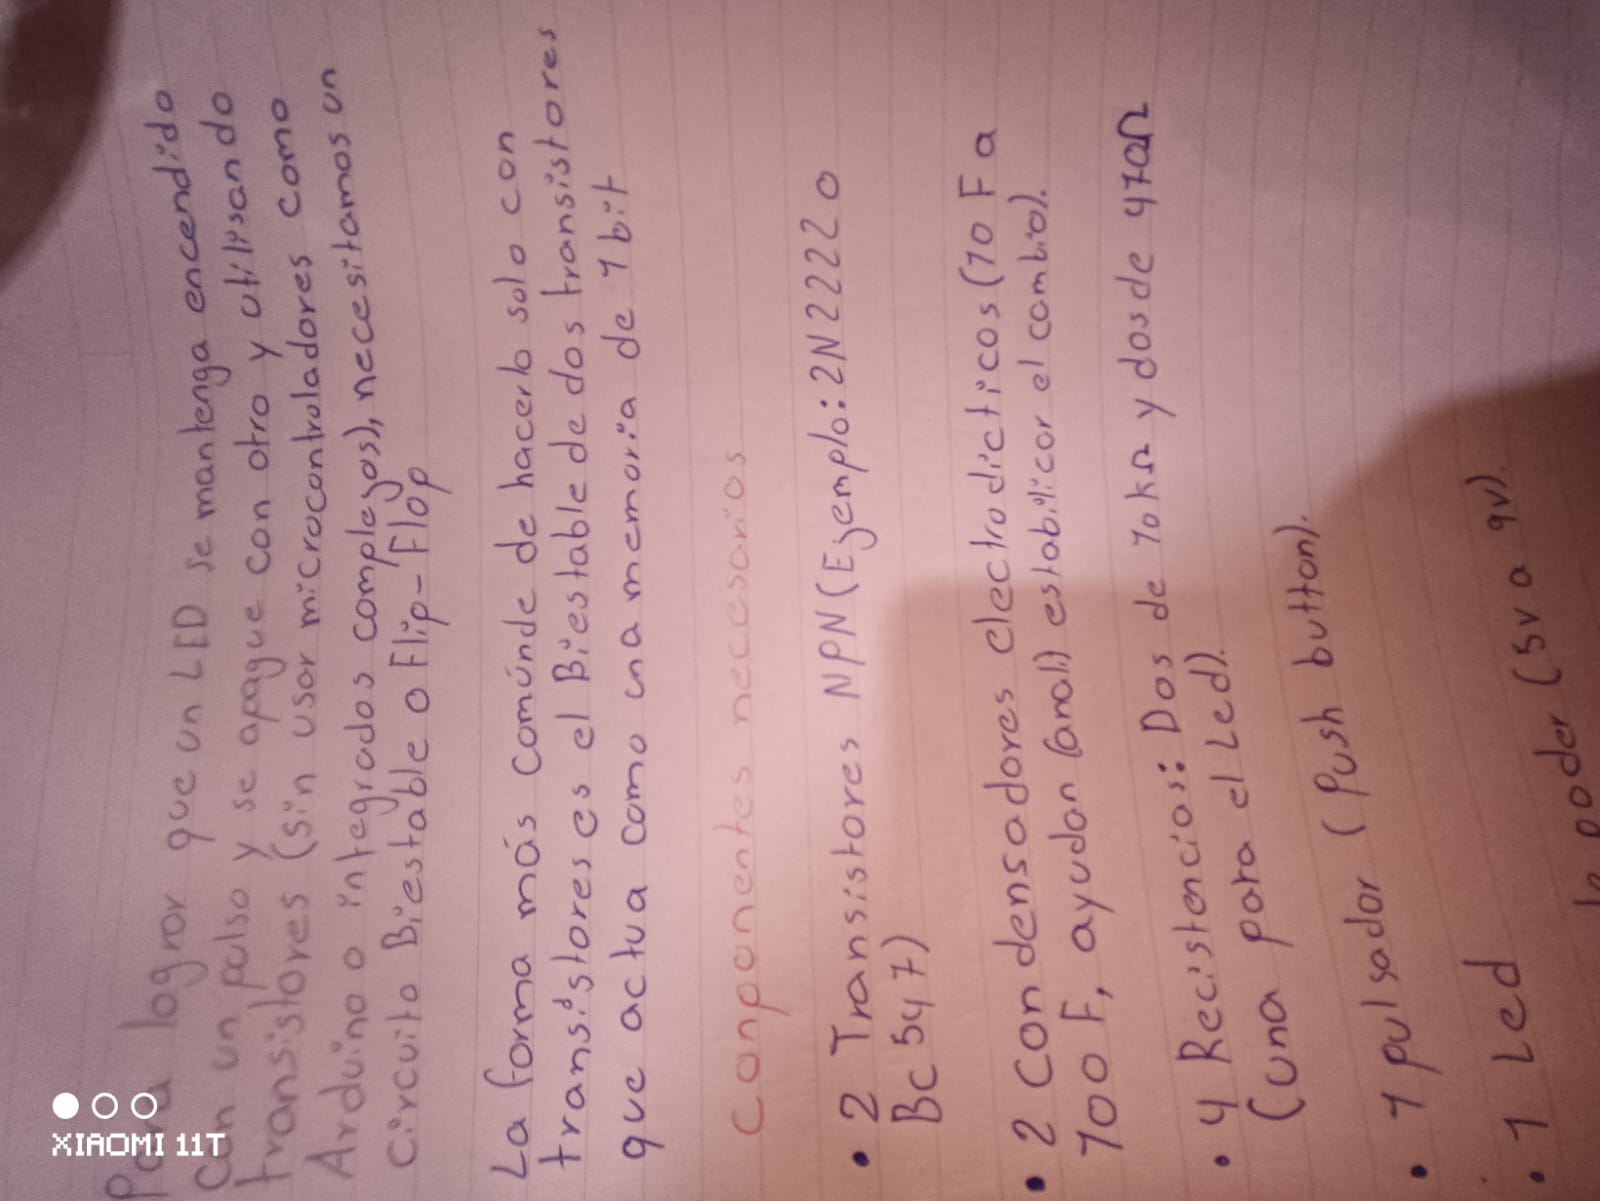 Para lograr que un LED se mantenga encendido
con un pulso y se apague con otro y utilisando
transistores (sin usar microcontroladores como
Arduino o integrados complegos), necesitamos un
circuito Biestable o Flip-Flop
La forma más comúnde hacerlo solo con
transistores es el Biestable de dos transistores
que actua como una memoria de 1 bit
Conponentes necesarios
• 2 Transistores NPN (Egemplo: 2N2222 o
Bc 547)
• 2 Condensadores electrodicticos (10 F a
100 F, ayudan a estabilicar el cambio).
• 4 Recistencias: Dos de 10kΩ y dos de 470Ω
(una para el Led).
• 1 pulsador (Push button).
• 1 Led
poder (5v a 9v).
XIAOMI 11T